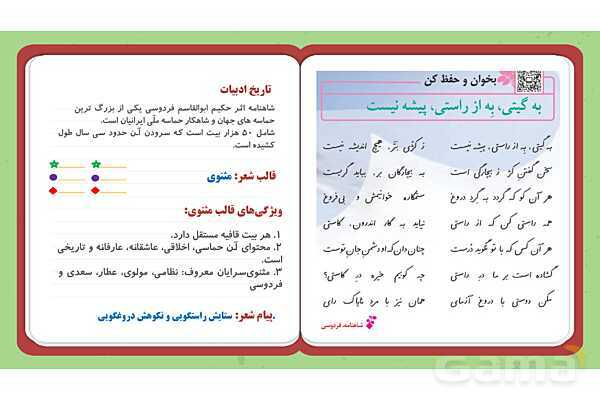 بخوان و حفظ کن
به گیتی، به از راستی، پیشه نیست
به گیتی، به از راستی، پیشه نیست ز کژی بتر، هیچ اندیشه نیست
سخن گفتن کژ ز بیچارگی است به بیچارگان بر، بباید گریست
هر آن کو که گردد به گرد دروغ ستمکاره خوانیمش و بی‌فروغ
همه راستی کن که از راستی نیاید به کار اندرون، کاستی
هر آن کس که با تو نگوید درست چنان دان که او دشمن جان توست
گشاده است بر ما در راستی چه کوبیم خیره در کاستی؟
مکن دوستی با دروغ آزمای همان نیز با مرد ناپاک رای
شاهنامه، فردوسی
تاریخ ادبیات
شاهنامه اثر حکیم ابوالقاسم فردوسی یکی از بزرگ ترین
حماسه های جهان و شاهکار حماسه ملّی ایرانیان است.
شامل ۵۰ هزار بیت است که سرودن آن حدود سی سال طول
کشیده است.
قالب شعر: مثنوی
ویژگی‌های قالب مثنوی:
۱. هر بیت قافیه مستقل دارد.
۲. محتوای آن حماسی، اخلاقی، عاشقانه، عارفانه و تاریخی
است.
۳. مثنوی‌سرایان معروف: نظامی، مولوی، عطار، سعدی و
فردوسی
پیام شعر: ستایش راستگویی و نکوهش دروغگویی.
Gama